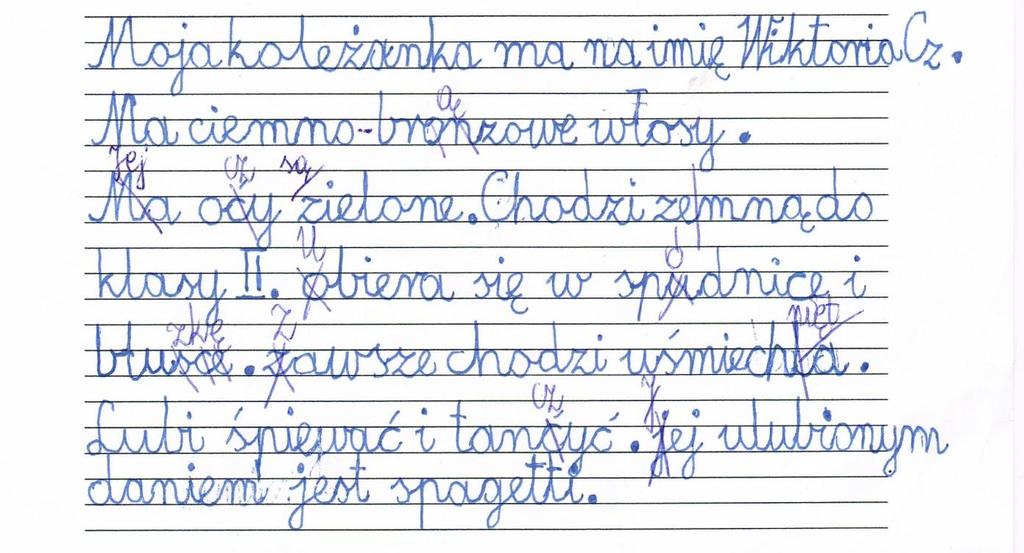 Moja koleżanka ma na imię Wiktoria Cz.
ą
Ma ciemno-bronzowe włosy.
Jej cz są
Ma ocy zielone. Chodzi zemną do
U ó
klasy II. obiera się w spudnice i
zkę Z nięt
błusce. zawsze chodzi uśmiechła.
cz J
Lubi śpiewać i tańcyć. jej ulubionym
daniem jest spagetti.